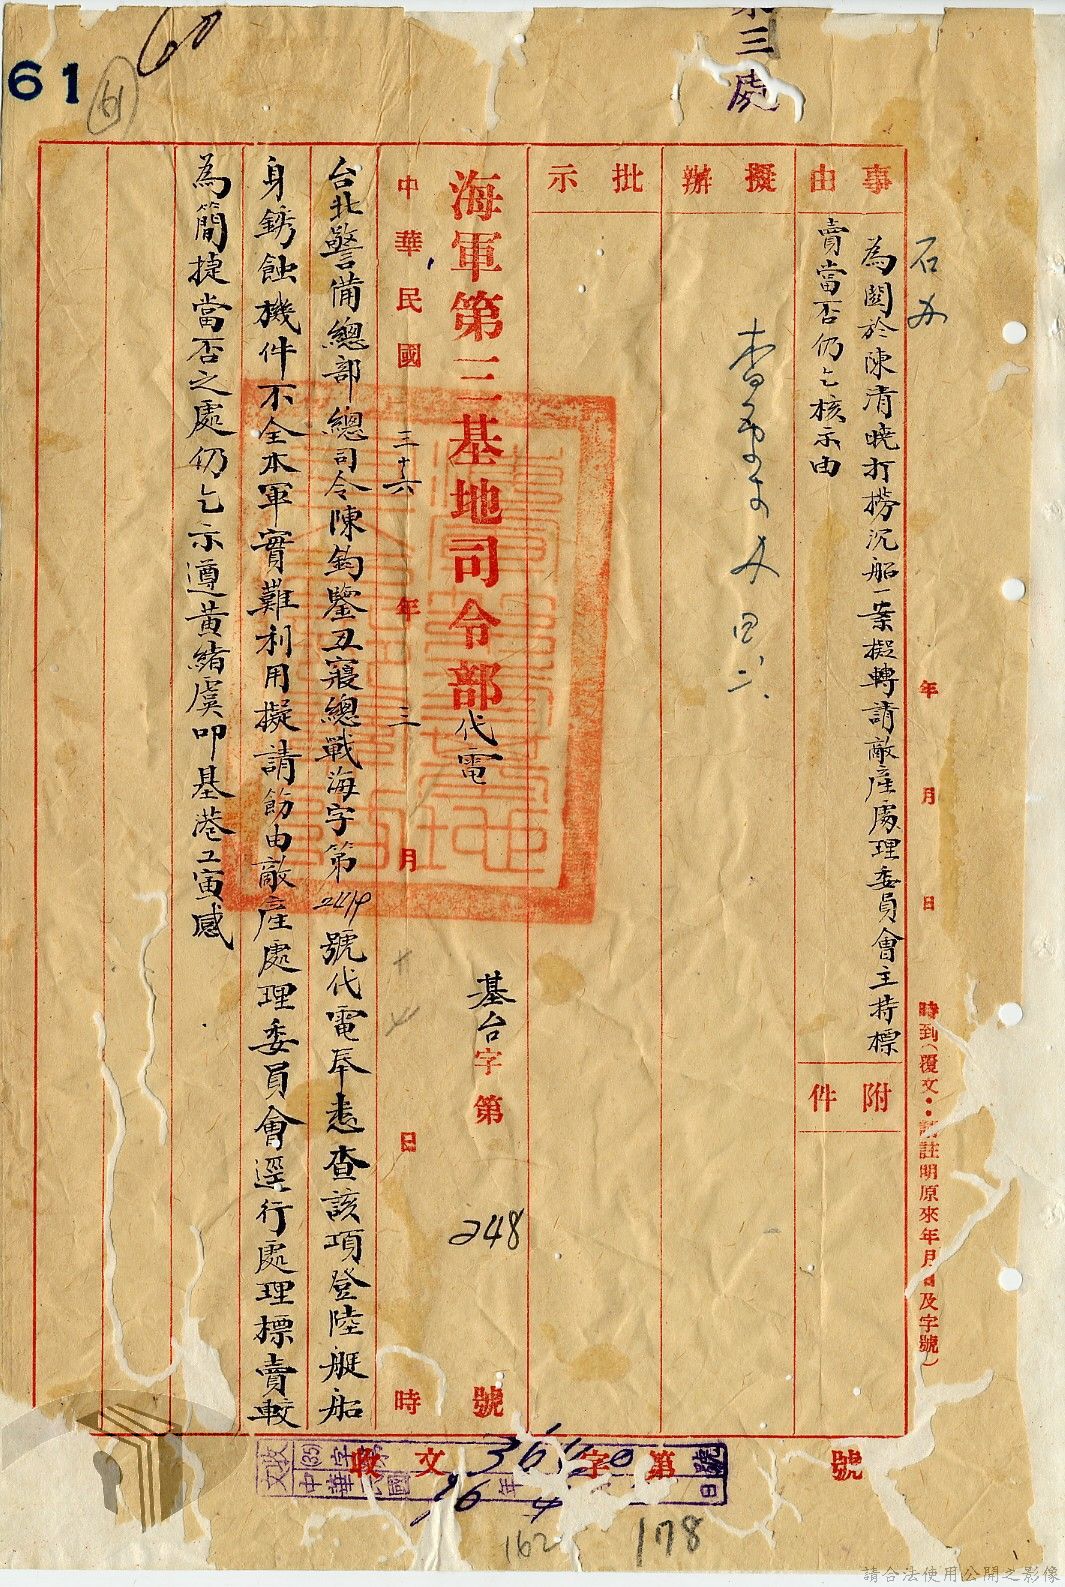 三處
60
61
61
事由
為關於陳清曉打撈沉船一案擬轉請敵產處理委員會主持標
賣當否仍乞核示由
附件
擬辦
批示
年 月 日 時到(覆文 註明原來年月日及字號)
海軍第三基地司令部代電
基台字第 248 號
中華民國三十六年三月 日 時
台北警備總部總司令陳鈞鑒丑寢總戰海字第2419號代電奉悉查該項登陸艇船
身銹蝕機件不全本軍實難利用擬請飭由敵產處理委員會逕行處理標賣較
為簡捷當否之處仍乞示遵黃緒虞叩基港工寅感
收文 字第 號
162
178
請合法使用公開之影像